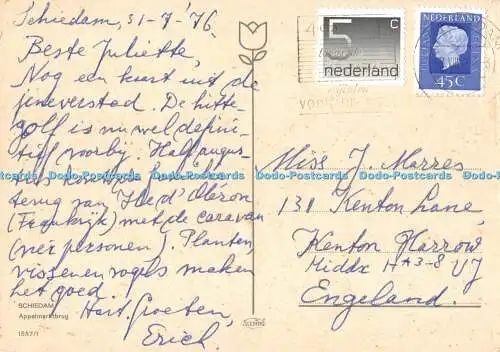 Schiedam, 31-7-'76
Beste Juliette,
Nog een kaart uit de
jeneverstad. De hitte-
golf is nu wel defini-
tief voorbij. Half augus-
tus
terug van Ile d'Oléron
(Frankrijk) met de caravan
(vier personen). Planten,
vissen en vogels maken
het goed.
Hart. Groeten,
Erich.
SCHIEDAM
Appelmarktbrug
1557/1
5 c
nederland
JULIANA REGINA
45 C
Miss J. Marres
131 Kenton Lane,
Kenton Harrow
Middx HA3-8 UJ
Engeland.
Dodo-Postcards Dodo-Postcards Dodo-Postcards Dodo-Postcards